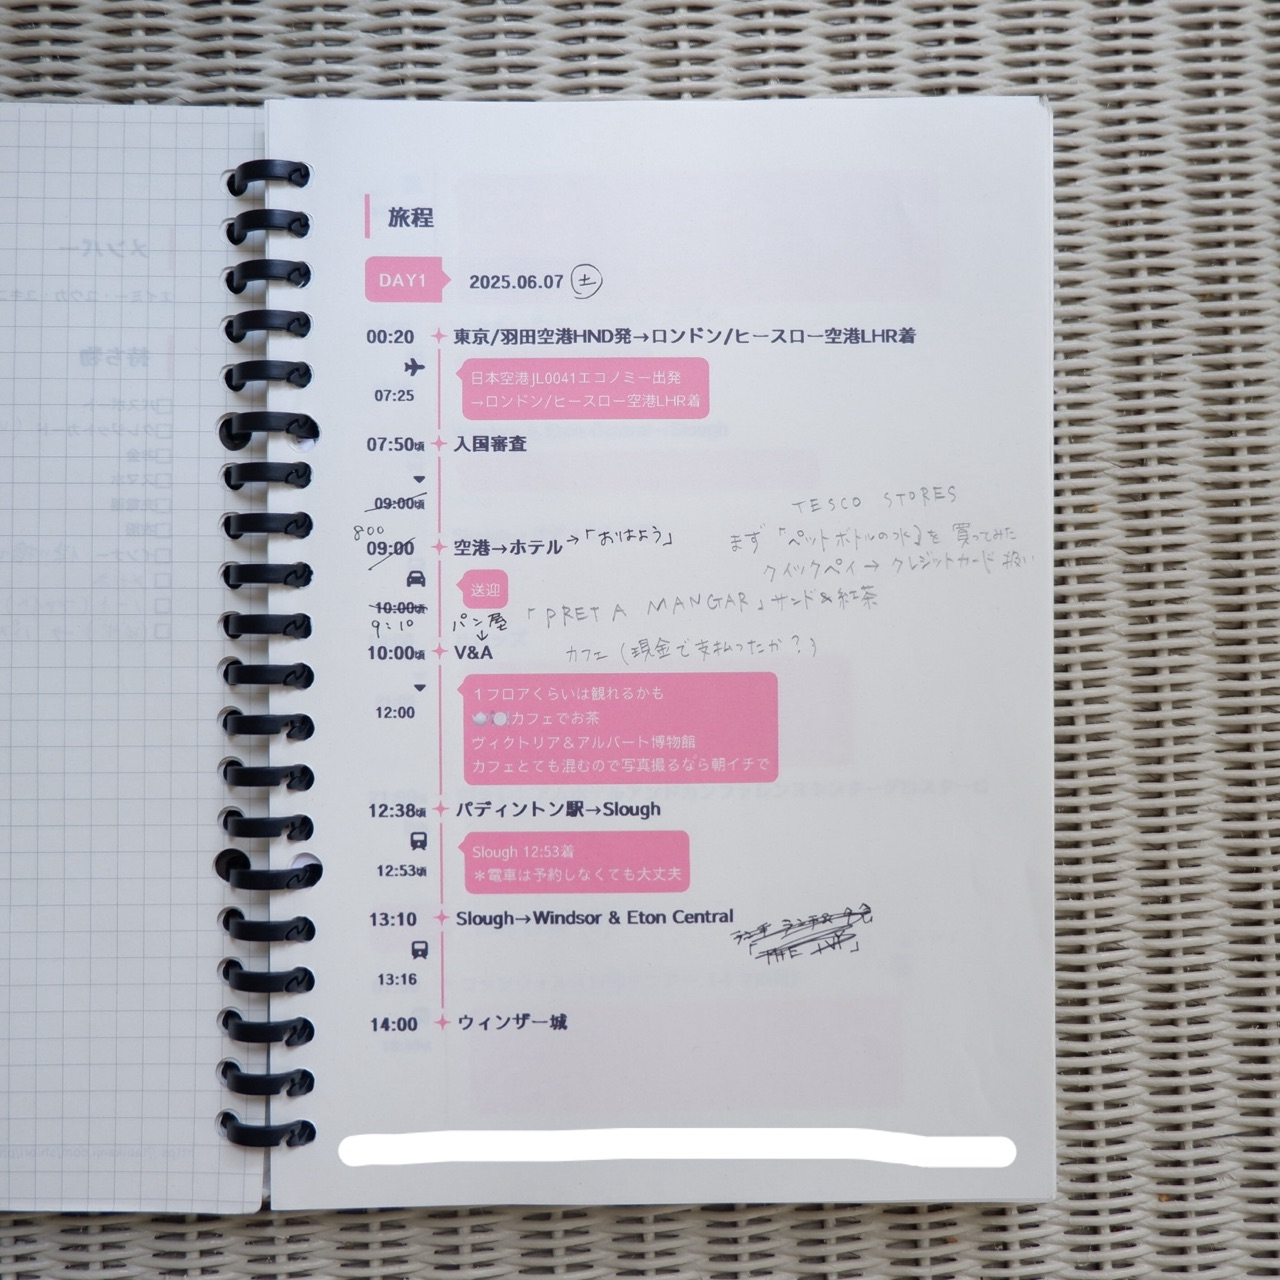 旅程
DAY1 2025.06.07 土
00:20 東京/羽田空港HND発→ロンドン/ヒースロー空港LHR着
日本空港JL0041エコノミー出発
07:25 →ロンドン/ヒースロー空港LHR着
07:50頃 入国審査
09:00頃
TESCO STORES
800
09:00 空港→ホテル→「おはよう」
まず「ペットボトルの水」を買ってみた
クイックペイ→クレジットカード扱い
送迎
10:00頃
9:10 パン屋「PRET A MANGAR」サンド&紅茶
↓
10:00頃 V&A カフェ(現金で支払ったか?)
1フロアくらいは観れるかも
12:00 カフェでお茶
ヴィクトリア&アルバート博物館
カフェとても混むので写真撮るなら朝イチで
12:38頃 パディントン駅→Slough
Slough 12:53着
12:53頃 *電車は予約しなくても大丈夫
13:10 Slough→Windsor & Eton Central
13:16
14:00 ウィンザー城